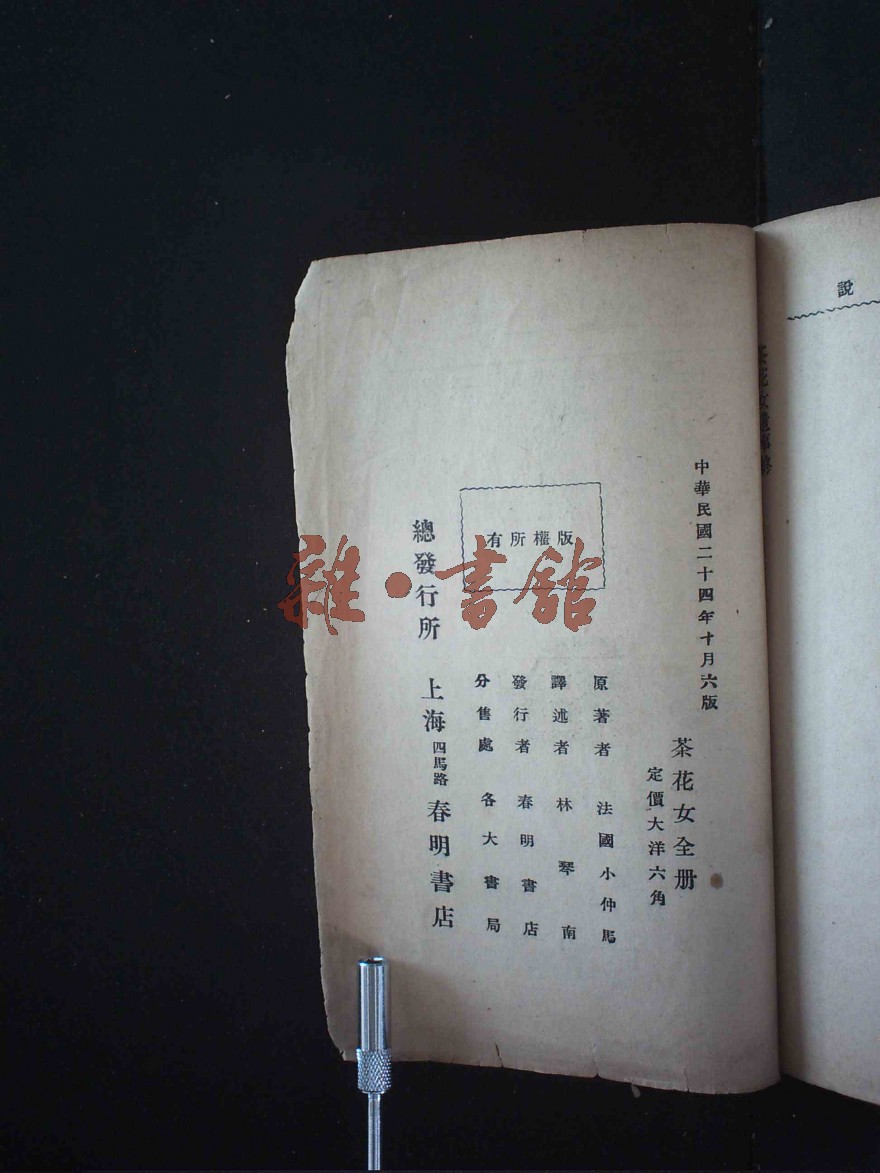 說
中華民國二十四年十月六版
茶花女全册
定價大洋六角
版權所有
原著者 法國小仲馬
譯述者 林琴南
發行者 春明書店
分售處 各大書局
總發行所 上海四馬路春明書店
雜·書館